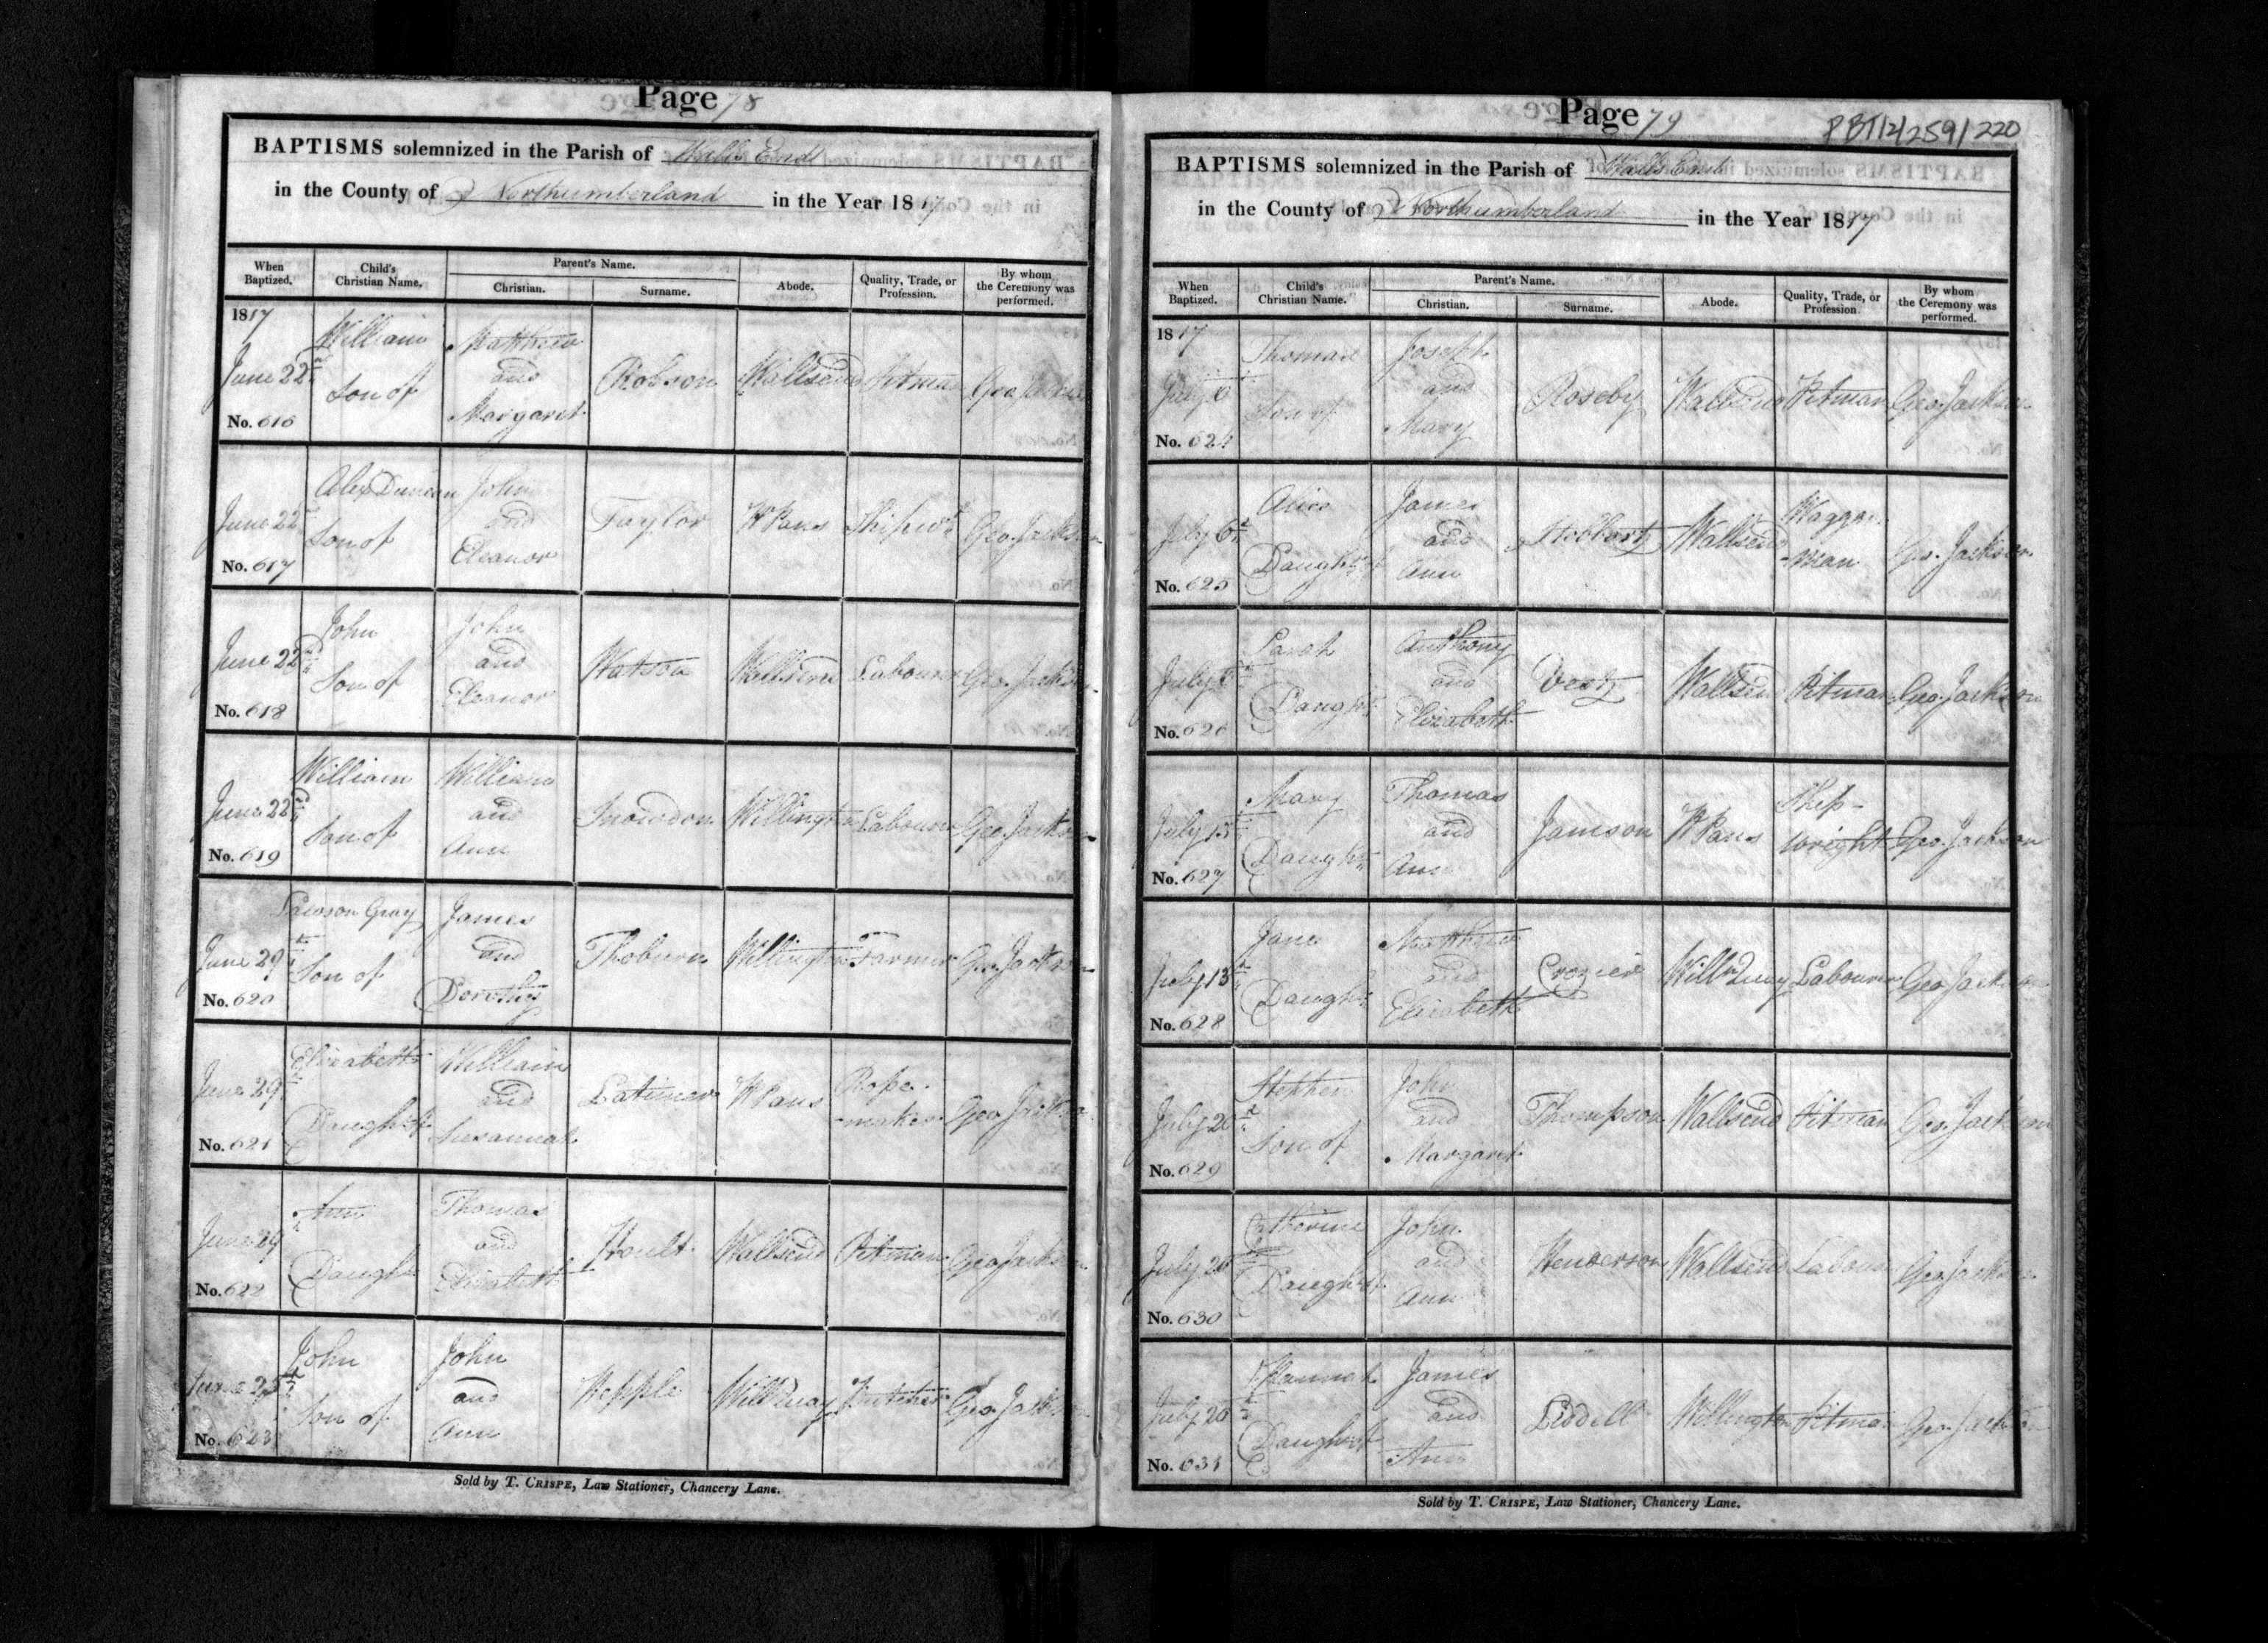 Page 78
BAPTISMS solemnized in the Parish of Walls End
in the County of Northumberland in the Year 1817
When Baptized. Child's Christian Name. Parent's Name. Christian. Surname. Abode. Quality, Trade, or Profession. By whom the Ceremony was performed.
1817
June 22nd William Son of Matthew and Margaret Robson Wallsend Pitman Geo. Jackson
No. 616
June 22nd Alexr Duncan Son of John and Eleanor Taylor W Pans Shipwt Geo. Jackson
No. 617
June 22nd John Son of John and Eleanor Watson Wallsend Labourer Geo. Jackson
No. 618
June 22nd William Son of William and Ann Snowdon Willington Labourer Geo. Jackson
No. 619
June 29th Lawson Gray Son of James and Dorothy Thoburn Willington Farmer Geo. Jackson
No. 620
June 29th Elizabeth Daughtr of William and Susannah Latimer W Pans Rope-maker Geo. Jackson
No. 621
June 29th Ann Daughtr Thomas and Elizabeth Hoult Wallsend Pitman Geo. Jackson
No. 622
June John Son of John and Ann Hepple Will Quay Butcher Geo. Jackson
No. 623
Sold by T. CRISPE, Law Stationer, Chancery Lane.
PBT12/259/220
Page 79
BAPTISMS solemnized in the Parish of Walls End
in the County of Northumberland in the Year 1817
When Baptized. Child's Christian Name. Parent's Name. Christian. Surname. Abode. Quality, Trade, or Profession. By whom the Ceremony was performed.
1817
July 6 Thomas Son of Joseph and Mary Roseby Wallsend Pitman Geo. Jackson
No. 624
July 6th Alice Daughtr of James and Ann Stobbart Wallsend Waggon-man Geo. Jackson
No. 625
July 6 Sarah Daughtr Anthony and Elizabeth Vest Wallsend Pitman Geo. Jackson
No. 626
July 13 Mary Daughtr Thomas and Ann Jamson W Pans Ship-wright Geo. Jackson
No. 627
July 13th Jane Daughtr Matthew and Elizabeth Crozier Willn Quay Labourer Geo. Jackson
No. 628
July 20 Stephen Son of John and Margaret Thompson Wallsend Pitman Geo. Jackson
No. 629
July 20 Catherine Daughtr of John and Ann Henderson Wallsend Labourer Geo. Jackson
No. 630
July 20 Hannah Daughtr of James and Ann Liddell Willington Pitman Geo. Jackson
No. 631
Sold by T. CRISPE, Law Stationer, Chancery Lane.